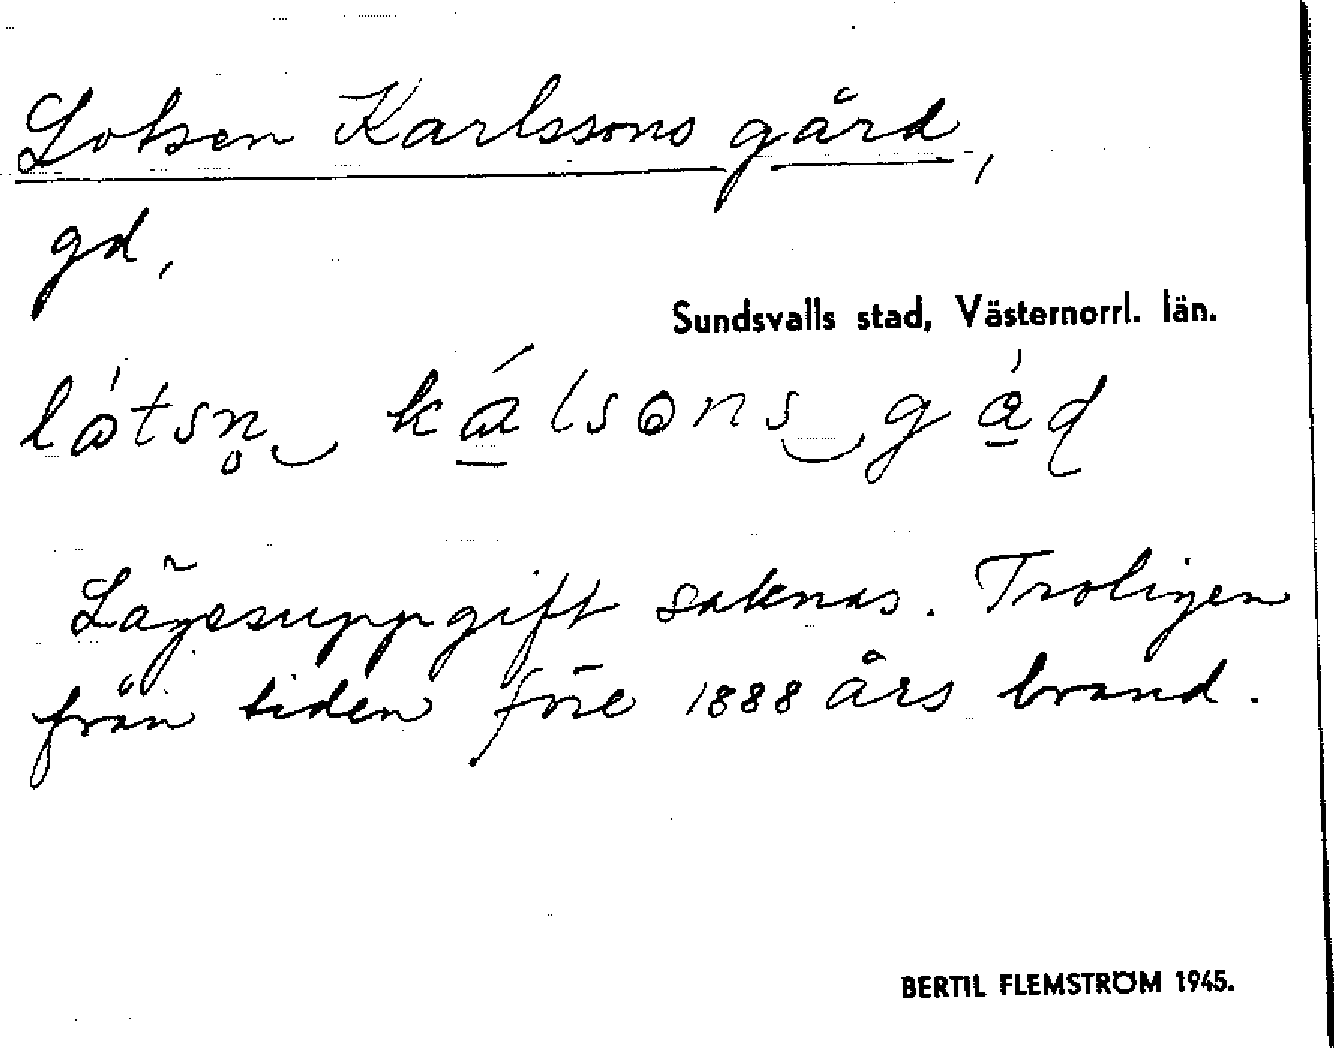 Lotsen Karlssons gård,
gd,
Sundsvalls stad, Västernorrl. län.
lótsn̥‿ká̱lsons‿gá̱ɖ
Lägesuppgift saknas. Troligen
från tiden före 1888 års brand.
BERTIL FLEMSTRÖM 1945.